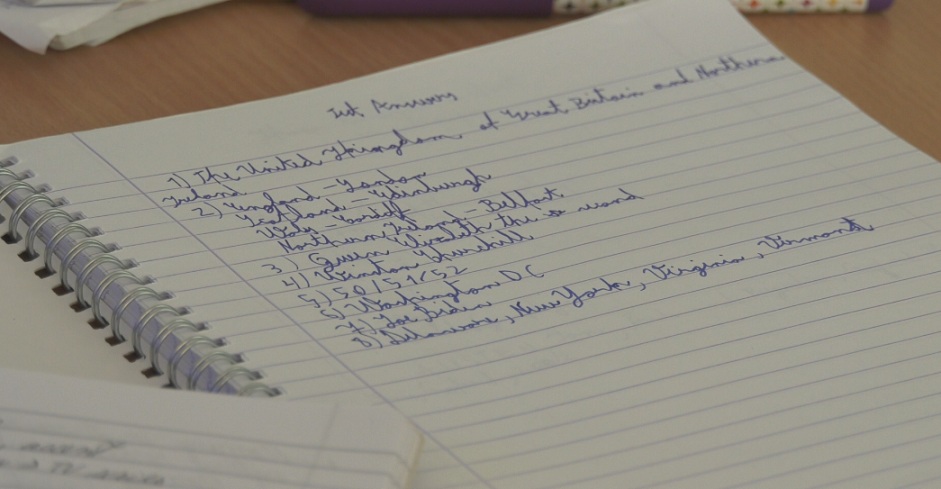 Test Answers
1) The United Khingdom of Great Britain and Northern
Ireland
2) England - London
Scotland - Edinburgh
Waly - Cardiff
Northern Ireland - Belfast
3) Queen Elizabeth the second
4) Winston Churchill
5) 50/51/52
6) Washington DC
7) Joe Biden
8) Delaware, New York, Virginia, Virmond